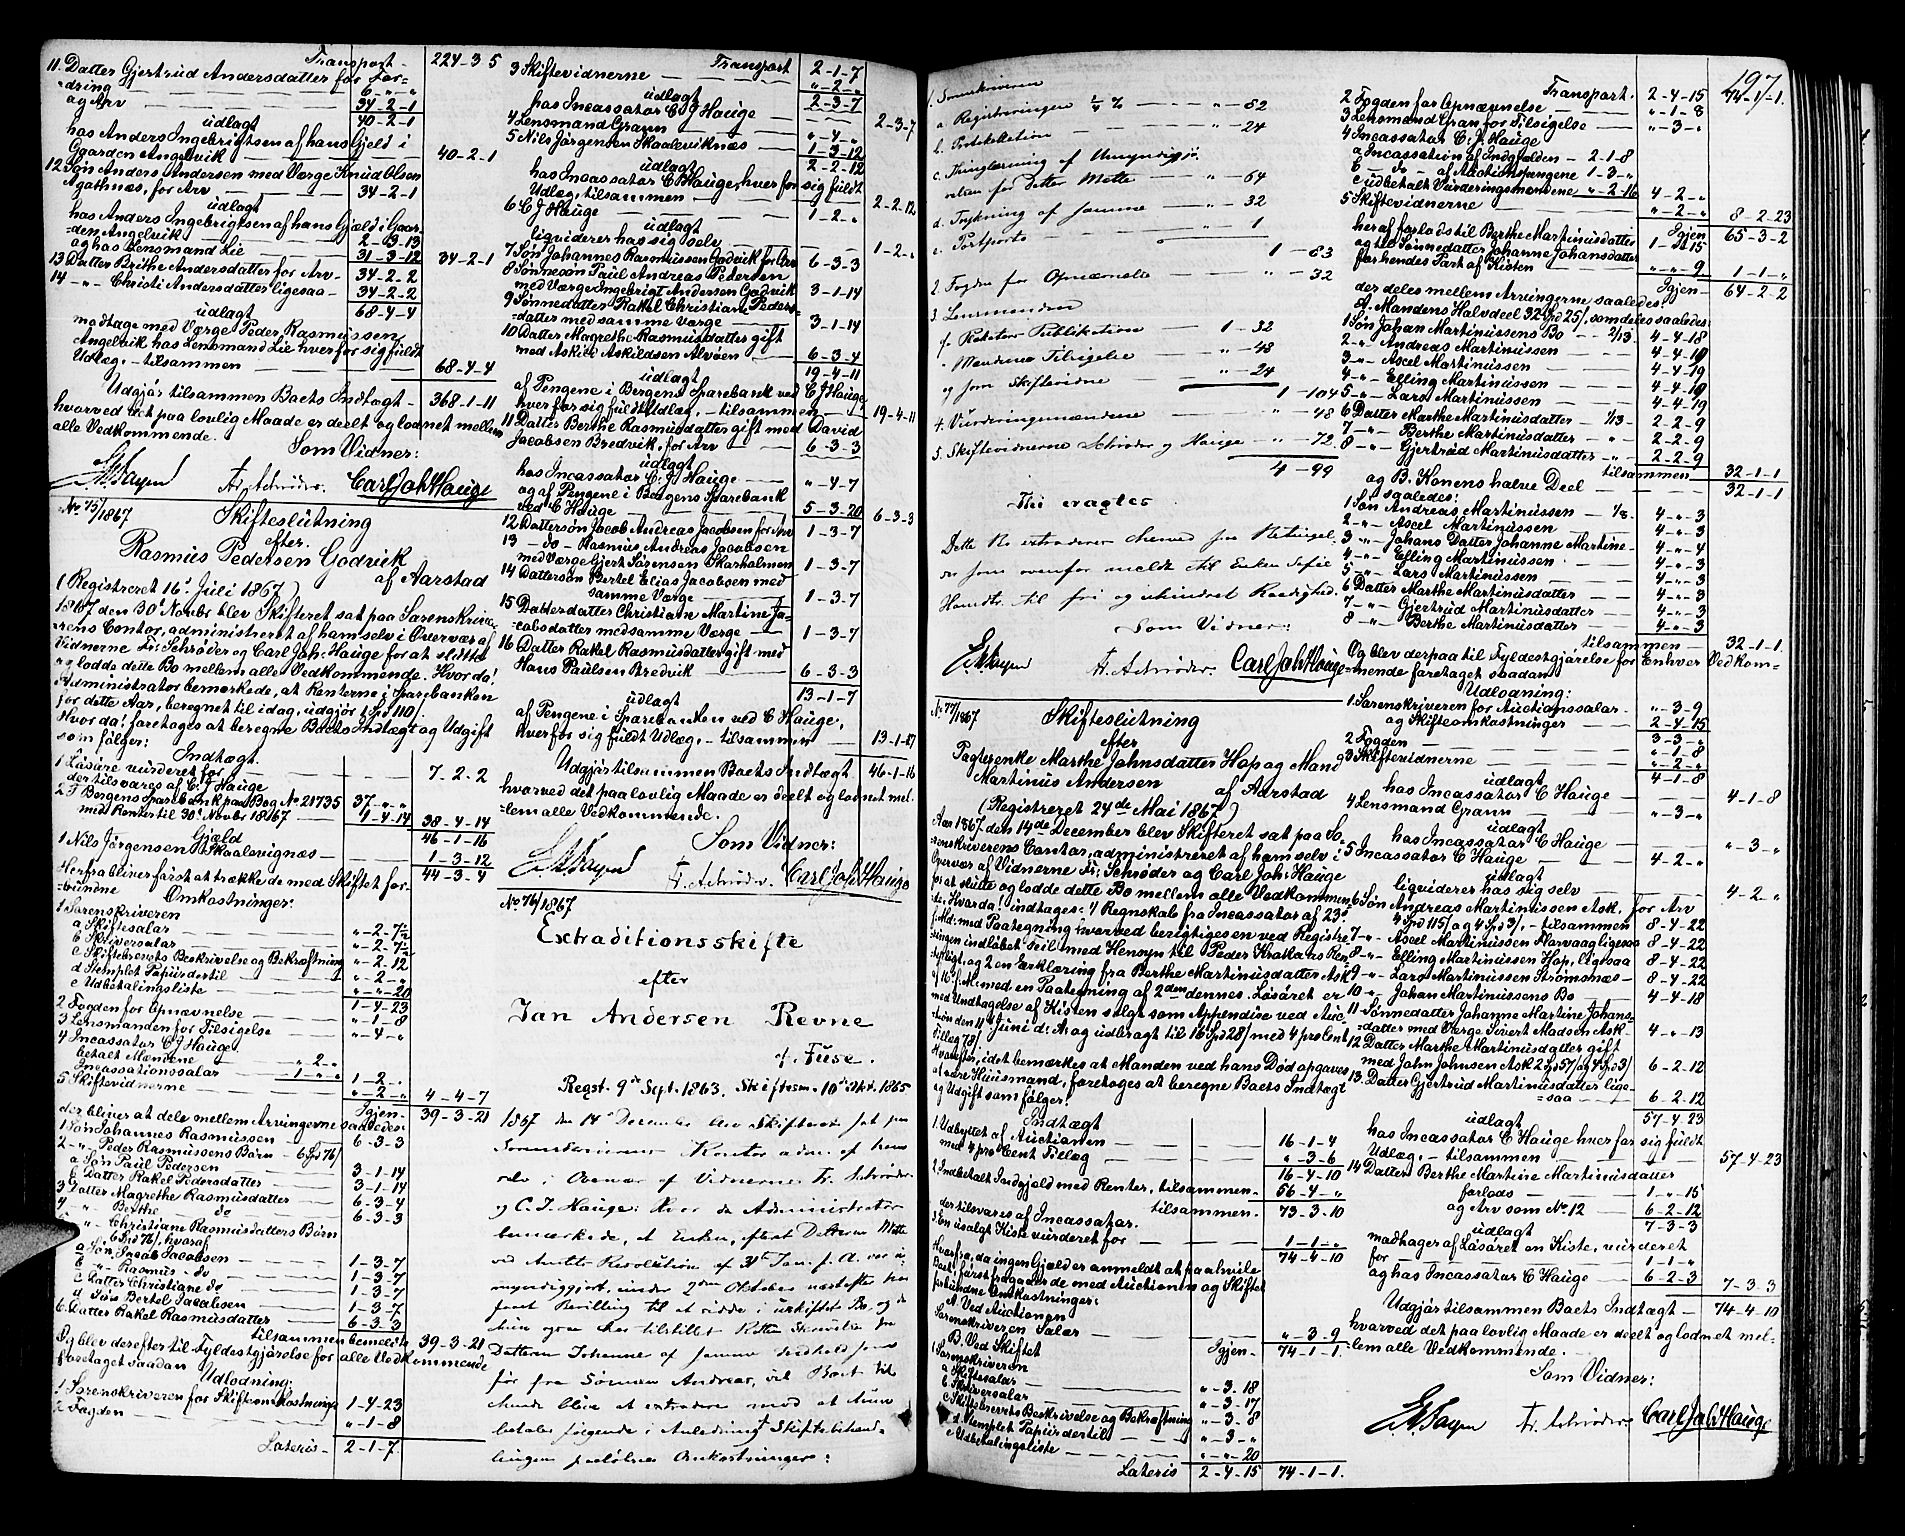 Transport - 224-3-5
11. Datter Gjertrud Andersdatter for For=
=dring — 6-„-„
og Arv — 34-2-1
udlagt 40-2-1
hos Anders Ingebrigtsen af hans Gjeld i
Gaarden Angelvik — 40-2-1
12 Søn Anders Andersen med Værge Knud Olsen
Agathnæs, for Arv — 34-2-1
udlagt
hos Anders Ingebrigtsen af hans Gjæld i Gaar-
den Angelvik — 2-3-13
og hos Lensmand Lie — 31-3-12 34-2-1
13 Datter Brithe Andersdatter for Arv - 34-2-2
14 -„- Christi Andersdatter ligesaa - 34-2-2
udlagt 68-4-4
modtage med Værge Peder Rasmussen
Angelvik hos Lensmand Lie hver for sig fuldt
Udlæg, - tilsammen — 68-4-4
Udgjør tilsammen Boets Indtægt - 368-1-11
hvorved det paa lovlig Maade er deelt og lodnet mellem
alle Vedkommende.
Som Vidner:
Fr. Schrøder. Carl Joh Hauge
No. 75/1867
Skifteslutning
efter
Rasmus Pedersen Godvik
af Aarstad
(Registreret 16. Juli 1867)
1867 den 30 Novbr blev Skifteret sat paa Sorenskrive-
rens Contor, administreret af ham selv i Overvær af
Vidnerne Fr: Schrøder og Carl Joh: Hauge for at slutte
og lodde dette Bo mellem alle Vedkommende. Hvorda!
Administrator bemærkede, at Renterne i Sparebanken
for dette Aar, beregnet til idag, udgjør 1 Spd 110/.
Hvorda! foretages at beregne Boets Indtægt og Udgift
som følger:
Indtægt.
1 Løsøre vurderet for — 7-2-2
der tilsvares af C. J Hauge
2 I Bergens Sparebank paa Bog No 21735 37-„-„
med Renter til 30 Novbr 1867 — 1-4-14 38-4-14
Gjæld 46-1-16
1 Nils Jørgensen Skaalevignæs — 1-3-12
Herfra bliver først at trække de med Skiftet for- 44-3-4
=bundne Omkostninger:
1 Sorenskriveren
a Skiftesalær „-2-7½
b Skriversalær „-2-7½
c Skiftebrevets Beskrivelse og Bekræftning „-2-12
d Stemplet Papiir dertil — „-2-„
e Udbetalingsliste — „-„-20
1-4-23
2 Fogden for Opnævnelse — „-1-8
3 Lensmanden for Tilsigelse — „-4-„
4 Incassator C J Hauge
betalt Mændene — „-2-„
Incassationssalær — 1-„-„ 1-2-„
5 Skiftevidnerne — „-2-„ 4-4-7
Igjen - 39-3-21
der bliver at dele mellem Arvingerne saaledes:
1 Søn Johannes Rasmussen — 6-3-3
2 -„- Peder Rasmussens Børn - 6 Spd 76/
a Søn Paul Pedersen — 3-1-14
b Datter Rakel Pedersdatter — 3-1-14
3 Datter Magrethe Rasmusdatter — 6-3-4
4 -„- Berthe — do — 6-3-3
-„- Christiane Rasmusdatters Børn
6 Spd 76/, hvoraf
a Søn Jacob Jacobsen — 1-3-7
b -„- Rasmus - do — 1-3-7
c Datter Christiane do — 1-3-7
d Søn Bertel Jacobsen — 1-3-7
6 Datter Rakel Rasmusdatter — 6-3-3
tilsammen bemeldte 39-3-21
Og blev derefter til Fyldestgjørelse for alle Vedkommende
foretaget saadan
Udlodning:
1 Sorenskriveren for Skifteomkostninger 1-4-23
2 Fogden — „-1-8
Lateris - 2-1-7
Transport 2-1-7
3 Skiftevidnerne — „-2-„
udlagt 2-3-7
hos Incassator C J Hauge — 2-3-7
4 Lensmand Grann — „-4-„
5 Nils Jørgensen Skaaleviknæs — 1-3-12
udlagt 2-2-12
hos Incassator C Hauge, hver for sig fuldt
Udlæg, tilsammen — 2-2-12
6 C J Hauge — 1-2-„
udlagt
liqviderer hos sig selv — 1-2-„
7 Søn Johannes Rasmussen Godvik for Arv 6-3-3
8 Sønnesøn Paul Andreas Pedersen
med Værge Ingebrigt Andersen Godvik 3-1-14
9 Sønnedatter Rakel Christiane Peders-
=datter med samme Værge — 3-1-14
10 Datter Magrethe Rasmusdatter gift
med Askild Askildsen Alvøen — 6-3-4
udlagt 19-4-11
af Pengene i Bergens Sparebank ved C J Hauge
hver for sig fuldt Udlæg, - tilsammen — 19-4-11
11 Datter Berthe Rasmusdatter gift med David
Jacobsen Bredvik, for Arv — 6-3-3
udlagt
hos Incassator C. J. Hauge — „-4-7
og af Pengene i Bergens Sparebank
ved C Hauge — 5-3-20 6-3-3
12 Dattersøn Jacob Andreas Jacobsen for Arv 1-3-7
13 - do - Rasmus Andreas Jacobsen
med Værge Gjert Sørensen Skarholmen 1-3-7
14 Dattersøn Bertel Elias Jacobsen med
samme Værge — 1-3-7
15 Datterdatter Christiane Martine Ja-
=cobsdatter med samme Værge — 1-3-7
16 Datter Rakel Rasmusdatter gift med
Hans Paulsen Bredvik — 6-3-3
udlagt 13-1-7
af Pengene i Sparebanken ved C Hauge,
hver for sig fuldt Udlæg, - tilsammen — 13-1-7
Udgjør tilsammen Boets Indtægt 46-1-16
hvorved det paa lovlig Maade er deelt og lodnet mel-
lem alle Vedkommende.
Som Vidner:
Fr. Schrøder. Carl Joh Hauge
No 76/1867
Extraditionsskifte
efter
Jan Andersen Revne
af Fuse.
Regst. 9de Sept. 1863. Skiftesm. 10de Oktr. 1865
1867 den 14de December blev Skifteret sat paa
Sorenskriverens Kontor adm. af ham
selv i Overvær af Vidnerne Fr. Schrøder
og C. J. Hauge: Hvor da Administrator
bemærkede, at Enken, efterat Datteren Mette
ved Amtets Resolution af 31te Jan. f. A. var u-
myndiggjort, under 2den Oktober næstefter har
faaet Bevilling til at sidde i uskiftet Bo, og da
hun har tilstillet Retten
Datteren Johanne
for fra Sønnen Andreas, vil Boet til
hende blive at extradere mod at hun
betaler følgende i Anledning Skiftebehand-
lingen paaløbne Omkostninger:
197
1. Sorenskriveren
a Registreringen ¼ % — „-52
b. Protokollation — „-24
c. Thinglæsning af Umyndiggjø-
relsen for Datter Mette — „-64
d. Trykning af samme — „-32
e. Portporto — „-1
1-83
2. Fogden for Opnævnelse — „-32
3. Lensmanden
f. Rettens Publikation — 1-32
- Mændenes Tilsigelse — „-48
og som Skiftevidne — „-24
1-104
4. Vurderingsmændene — „-48
5. Skiftevidnerne Schrøder og Hauge — „-72
4-99
Thi eragtes
Dette Bo extraderes hermed paa Betingel-
se som ovenfor meldt til Enken Sofie
Hansdtr. til fri og uhindret Raadighed.
Som Vidner:
Fr. Schrøder. Carl Joh Hauge
No. 77/1867
Skifteslutning
efter
Pagterenke Marthe Johnsdatter Hop og Mand
Martinus Andersen af Aarstad
(Registreret 24de Mai 1867)
Aar 1867 den 14de December blev Skifteret sat paa So-
renskriverens Contor, administreret af ham selv i
Overvær af Vidnerne Fr: Schrøder og Carl Joh: Hauge
for at slutte og lodde dette Bo mellem alle Vedkommen-
de: Hvorda! indtages: 1 Regnskab fra Incassator af 23de
f: Md: med Paategning hvorved berigtigesen ved Registre-
ringen indløbet Feil med Hensyn til Peder Krattans Ren-
, og 2 en Erklæring fra Berthe Martinusdatter Ask
af 16 f. M: med en Paategning af 2den dennes. Løsøret er
med Undtagelse af Kisten solgt som Appendise ved Auc-
tion den 11te Juni d: A. og udbragt til 16 Spd 28/ med 4 procent
Tillæg 78/.
Hvorefter, idet bemærkes at Manden ved hans Død opgaves
at være Huusmand, foretages at beregne Boets Indtægt
og Udgift som følger:
Indtægt
1 Udbyttet af Auctionen — 16-1-4
med 4 pro Cent Tillæg — „-3-6
16-4-10
2 Indbetalt Indgjæld med Renter, tilsammen - 56-4-„
tilsammen - 73-3-10
der tilsvares af Incassator.
3 En usolgt Kiste vurderet for — 1-1-„
74-4-10
Hvorfra, da ingen Gjæld er anmeldt at paahvile
Boet, først fragaar de med Auctionen og Skiftet
forbundne Omkostninger:
A. Ved Auctionen
Sorenskriveren Salær — „-3-9
B. Ved Skiftet Igjen - 74-1-1.
1 Sorenskriveren
a Skiftesalær — „-3-18
b Skriversalær — „-3-17
c Skiftebrevets Beskrivelse og Bekræftning „-3-8
d Stemplet Papiir dertil — „-3-„
e Udbetalingsliste — „-„-20
Lateris 2-4-15 74-1-1.
Transport. 2-4-15 74-1-1.
2 Fogden for Opnævnelse — „-1-8
3 Lensmand Gran for Tilsigelse — „-3-„
4 Incassator C. J. Hauge
a Incassation af Indgjælden - 2-1-8
b - do - af Auctionspengene 1-3-„
c udbetalt Vurderingsmændene „-2-16 4-2-„
5 Skiftevidnerne — „-2-„ 8-2-23
Igjen 65-3-2
heraf forlods til Berthe Martinusdatter 1-„-15
og til Sønnedatter Johanne Johansdatter
for hendes Part af Kisten — „-„-9 1-1-„
Igjen - 64-2-2
der deles mellem Arvingerne saaledes:
A. Mandens Halvdeel 32 Spd 25/, som deles saaledes:
1 Søn Johan Martinussens Bo - - 2/13 - 4-4-18
2 -„- Andreas Martinussen — 4-4-19
3 -„- Ascel Martinussen — 4-4-19
4 -„- Elling Martinussen — 4-4-19
5 -„- Lars Martinussen — 4-4-19
6 Datter Marthe Martinusdatter - 1/13 - 2-2-9
7 -„- Berthe Martinusdatter - „ - 2-2-9
8 -„- Gjertrud Martinusdatter - „ - 2-2-9
tilsammen 32-1-1
og B. Konens halve Deel — 32-1-1
saaledes:
1 Søn Andreas Martinussen — 1/8 - 4-„-3
2 -„- Ascel Martinussen — 4-„-3
3 -„- Johans Datter Johanne Martine - 4-„-4
4 -„- Elling Martinussen — 4-„-3
5 -„- Lars Martinussen — 4-„-3
6 Datter Marthe Martinusdatter — 4-„-3
7 -„- Gjertrud Martinusdatter — 4-„-3
8 -„- Berthe Martinusdatter — 4-„-3
tilsammen — 32-1-1.
Og blev derpaa til Fyldestgjørelse for Enhver Vedkom-
=mende foretaget saadan
Udlodning:
1 Sorenskriveren for Auctionssalær - „-3-9
og Skifteomkostninger — 2-4-15
3-3-„
2 Fogden — „-1-8
3 Skiftevidnerne — „-2-„
udlagt 4-1-8
hos Incassator C Hauge — 4-1-8
4 Lensmand Grann — „-3-„
udlagt
hos Incassator C Hauge — „-3-„
5 Incassator C Hauge — 4-2-„
udlagt
liqviderer hos sig selv — 4-2-„
6 Søn Andreas Martinussen Ask, for Arv
4 Spd 115/ og 4 Spd 3/, - tilsammen 8-4-22
7 -„- Ascel Martinussen Norvaag ligesaa 8-4-22
8 -„- Elling Martinussen Hop, ligesaa 8-4-22
9 -„- Lars Martinussen Strømsnæs - 8-4-22
10 -„- Johan Martinussens Bo — 4-4-18
11 Sønnedatter Johanne Martine Johans-
=datter med Værge Sivert Madsen Ask - 4-„-13
12 Datter Marthe Martinusdatter gift
med John Johnsen Ask 2 Spd 57/ og 4 Spd 3/ 6-2-12
13. Datter Gjertrud Martinusdatter lige-
=saa — 6-2-12
udlagt 57-4-23
hos Incassator C Hauge hver for sig fuldt
Udlæg, - tilsammen — 57-4-23
14 Datter Berthe Martine Martinusdatter
forlods — 1-„-15
og Arv som No 12 — 6-2-12
udlagt 7-3-3
modtager af Løsøret en Kiste, vurderet
for — 1-1-„
og hos Incassator C Hauge — 6-2-3 7-3-3
Udgjør tilsammen Boets Indtægt - 74-4-10
hvorved det paa lovlig Maade er deelt og lodnet mel-
=lem alle Vedkommende.
Som Vidner:
Fr. Schrøder. Carl Joh Hauge